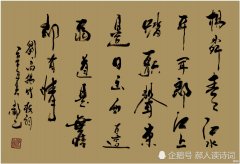 杨柳青青江水
平闻郎江上
踏歌声东
边日出西边
雨道是無
却有情
刘禹锡竹枝词
企鹅号 郝人读诗词